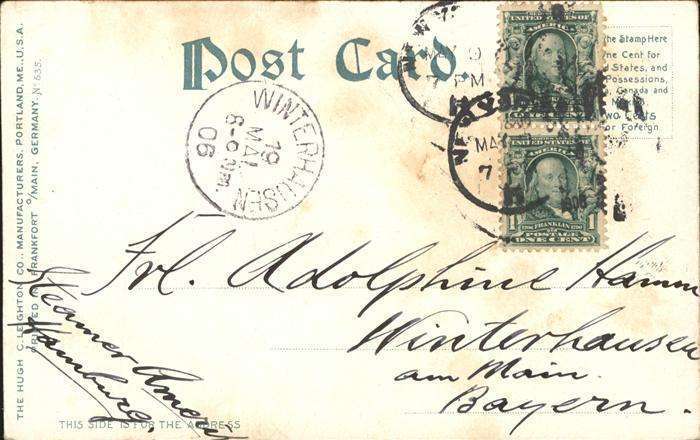 Post Card
THE HUGH C. LEIGHTON CO., MANUFACTURERS, PORTLAND, ME., U.S.A.
PRINTED IN FRANKFORT o/MAIN, GERMANY. No 535.
WINTERHAUSEN
19
MAI
8-9
06
NEW YO
MAY 9
7 PM
NEW YO
MA
7
1906
UNITED STATES OF
AMERICA
1 FRANKLIN
POSTAGE
ONE CENT
he Stamp Here
ne Cent for
d States, and
Possessions,
Canada and
wo Cents
for Foreign
Frl. Adolphine Hamm
Winterhausen
am Main.
Bayern.
Steamer Ameri
Hamburg.
THIS SIDE IS FOR THE ADDRESS